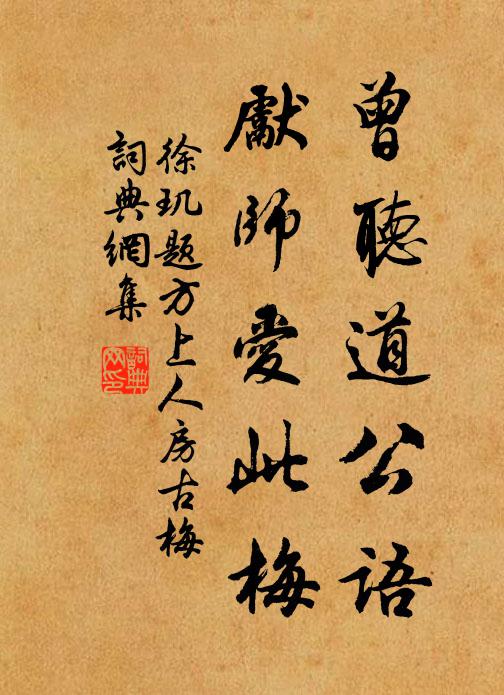 曾聽道公語
獻師愛此梅
徐玑题方上人房古梅
詞典網集
詞典網印